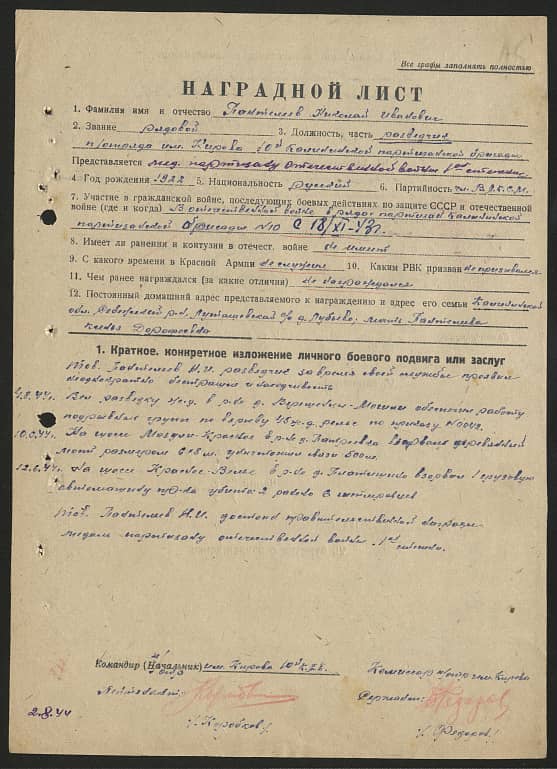 Все графы заполнять полностью
НАГРАДНОЙ ЛИСТ
1. Фамилия имя и отчество Пантелеев Николай Иванович
2. Звание рядовой 3. Должность, часть разведчик
п/отряда им. Кирова 10й Калининской партизанской бригады
Представляется мед. партизану отечественной войны 1ой степени
4. Год рождения 1922 5. Национальность русский 6. Партийность чл. ВЛКСМ.
7. Участие в гражданской войне, последующих боевых действиях по защите СССР и отечественной
войне (где и когда) В отечественной войне в рядах партизан Калининской
партизанской бригады №10 с 18/XI-43г.
8. Имеет ли ранения и контузии в отечест. войне не имеет
9. С какого времени в Красной Армии не служил 10. Каким РВК призван не призывался
11. Чем ранее награждался (за какие отличия) не награждался
12. Постоянный домашний адрес представляемого к награждению и адрес его семьи Калининская
обл. р-н, с/с д. мать Пантелеева
Дорофеевна
1. Краткое, конкретное изложение личного боевого подвига или заслуг
Тов. Пантелеев Н.И. разведчик за время своей службы проявил
неоднократно и находчивость
4.2.44г. Вел разведку ж.д. в р-не д. обеспечил работу
подрывных групп по взрыву рельс по приказу №0042.
10.6.44г. На шоссе Мозули-Красное в р-не д. взорвал деревянный
мост размером 6×5 м. уничтожил связи 500м.
12.6.44г. На шоссе Красное- в р-не д. взорвал 1 грузовую
автомашину пр-ка убито 2 ранено 6 гитлеровцев
Тов. Пантелеев Н.И. достоин правительственной награды
медали партизану отечественной войны 1ой степени.
Командир (Начальник) п/отр им. Кирова 10й К.П.Б. Комиссар п/отр им. Кирова
/Коробков/ /Федоров/
2.8.44